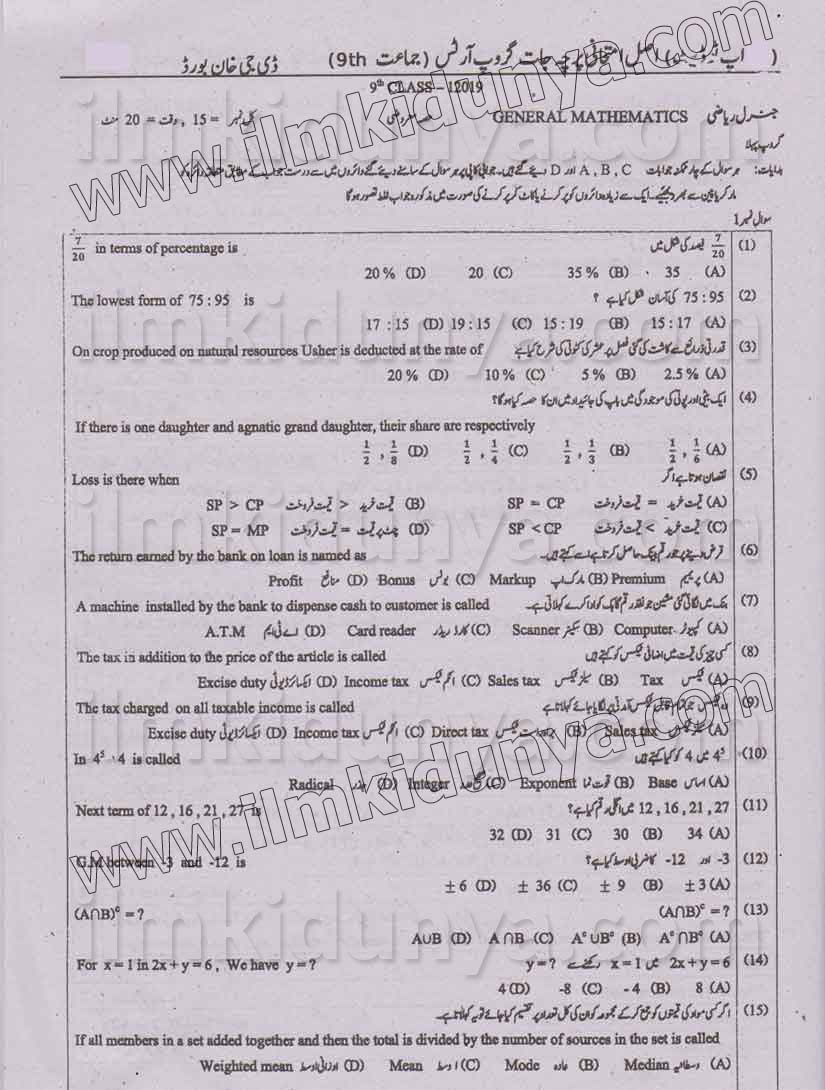 (اپ ٹو ڈیٹ) اصل امتحانی پرچہ جات گروپ آرٹس (جماعت 9th) ڈی جی خان بورڈ
9th CLASS – 12019
جنرل ریاضی GENERAL MATHEMATICS حصہ معروضی کل نمبر = 15 , وقت = 20 منٹ
گروپ پہلا
ہدایات: ہر سوال کے چار ممکنہ جوابات A , B , C اور D دیئے گئے ہیں۔ جوابی کاپی پر ہر سوال کے سامنے دیئے گئے دائروں میں سے درست جواب کے مطابق متعلقہ دائرہ کو
مارکر یا پین سے بھر دیجئے۔ ایک سے زیادہ دائروں کو پر کرنے یا کاٹ کر پر کرنے کی صورت میں مذکورہ جواب غلط تصور ہو گا
سوال نمبر 1
(1) 7/20 فیصد کی شکل میں 7/20 in terms of percentage is
20 % (D) 20 (C) 35 % (B) 35 (A)
(2) 75 : 95 کی آسان شکل کیا ہے ؟ The lowest form of 75 : 95 is
17 : 15 (D) 19 : 15 (C) 15 : 19 (B) 15 : 17 (A)
(3) قدرتی ذرائع سے کاشت کی گئی فصل پر عشر کی کٹوتی کی شرح کیا ہے On crop produced on natural resources Usher is deducted at the rate of
20 % (D) 10 % (C) 5 % (B) 2.5 % (A)
(4) ایک بیٹی اور پوتی کی موجودگی میں باپ کی جائیداد میں ان کا حصہ کیا ہوگا؟
If there is one daughter and agnatic grand daughter, their share are respectively
1/2 , 1/8 (D) 1/2 , 1/4 (C) 1/2 , 1/3 (B) 1/2 , 1/6 (A)
(5) نقصان ہوتا ہے اگر Loss is there when
SP > CP قیمت فروخت > قیمت خرید (B) SP = CP قیمت فروخت = قیمت خرید (A)
SP = MP قیمت فروخت = چٹ پر قیمت (D) SP < CP قیمت فروخت < قیمت خرید (C)
(6) قرض دینے پر جو رقم بینک حاصل کرتا ہے اسے کہتے ہیں۔ The return earned by the bank on loan is named as
Profit منافع (D) Bonus بونس (C) Markup مارک اپ (B) Premium پریمیم (A)
(7) بنک میں لگائی گئی مشین جو نقد رقم گاہک کو ادا کرے کہلاتی ہے۔ A machine installed by the bank to dispense cash to customer is called
A.T.M اے ٹی ایم (D) Card reader کارڈ ریڈر (C) Scanner سکینر (B) Computer کمپیوٹر (A)
(8) کسی چیز کی قیمت میں اضافی ٹیکس کو کہتے ہیں The tax in addition to the price of the article is called
Excise duty ایکسائز ڈیوٹی (D) Income tax انکم ٹیکس (C) Sales tax سیلز ٹیکس (B) Tax ٹیکس (A)
(9) وہ ٹیکس جو تمام قابل ٹیکس آمدنی پر لگایا جائے کہلاتا ہے The tax charged on all taxable income is called
Excise duty ایکسائز ڈیوٹی (D) Income tax انکم ٹیکس (C) Direct tax براہ راست ٹیکس (B) Sales tax سیلز ٹیکس (A)
(10) 4⁵ میں 4 کو کیا کہتے ہیں In 4⁵ 4 is called
Radical جذر (D) Integer صحیح عدد (C) Exponent قوت نما (B) Base اساس (A)
(11) 12 , 16 , 21 , 27 میں اگلی رقم کیا ہے؟ Next term of 12 , 16 , 21 , 27 is
32 (D) 31 (C) 30 (B) 34 (A)
(12) -3 اور -12 کا ضربی اوسط کیا ہے؟ G.M between -3 and -12 is
± 6 (D) ± 36 (C) ± 9 (B) ± 3 (A)
(13) (A∩B)ᶜ = ? (A∩B)ᶜ = ?
A∪B (D) A∩B (C) Aᶜ∪Bᶜ (B) Aᶜ∩Bᶜ (A)
(14) 2x + y = 6 میں x = 1 رکھنے سے y = ? For x = 1 in 2x + y = 6 , We have y = ?
4 (D) -8 (C) - 4 (B) 8 (A)
(15) اگر کسی مواد کی قیمتوں کو جمع کر کے مجموعہ کو ان کی کل تعداد پر تقسیم کیا جائے تو یہ کہلاتا ہے۔
If all members in a set added together and then the total is divided by the number of sources in the set is called
Weighted mean اوزانی اوسط (D) Mean اوسط (C) Mode عادہ (B) Median وسطانیہ (A)
www.ilmkidunya.com
www.ilmkidunya.com
ilmkidunya.com
ilmkidunya.com
ilmkidunya.com
ilmkidunya.com
ilmkidunya.com